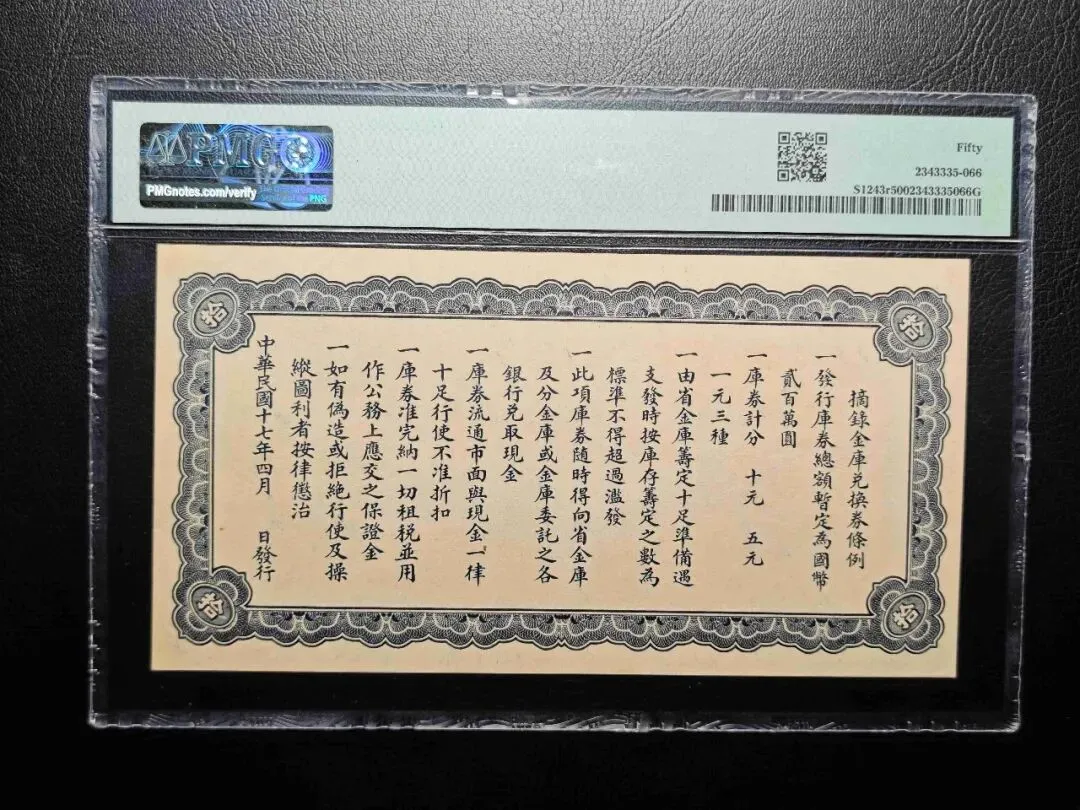 PMG
PMGnotes.com/verify
PNG
Fifty
2343335-066
S1243r5002343335066G
拾
拾
摘錄金庫兌換券條例
一發行庫券總額暫定為國幣
貳百萬圓
一庫券計分 十元 五元
一元三種
一由省金庫籌定十足準備遇
支發時按庫存籌定之數為
標準不得超過濫發
一此項庫券隨時得向省金庫
及分金庫或金庫委託之各
銀行兌取現金
一庫券流通市面與現金一律
十足行使不准折扣
一庫券准完納一切租税並用
作公務上應交之保證金
一如有偽造或拒絶行使及操
縱圖利者按律懲治
中華民國十七年四月 日發行
拾
拾